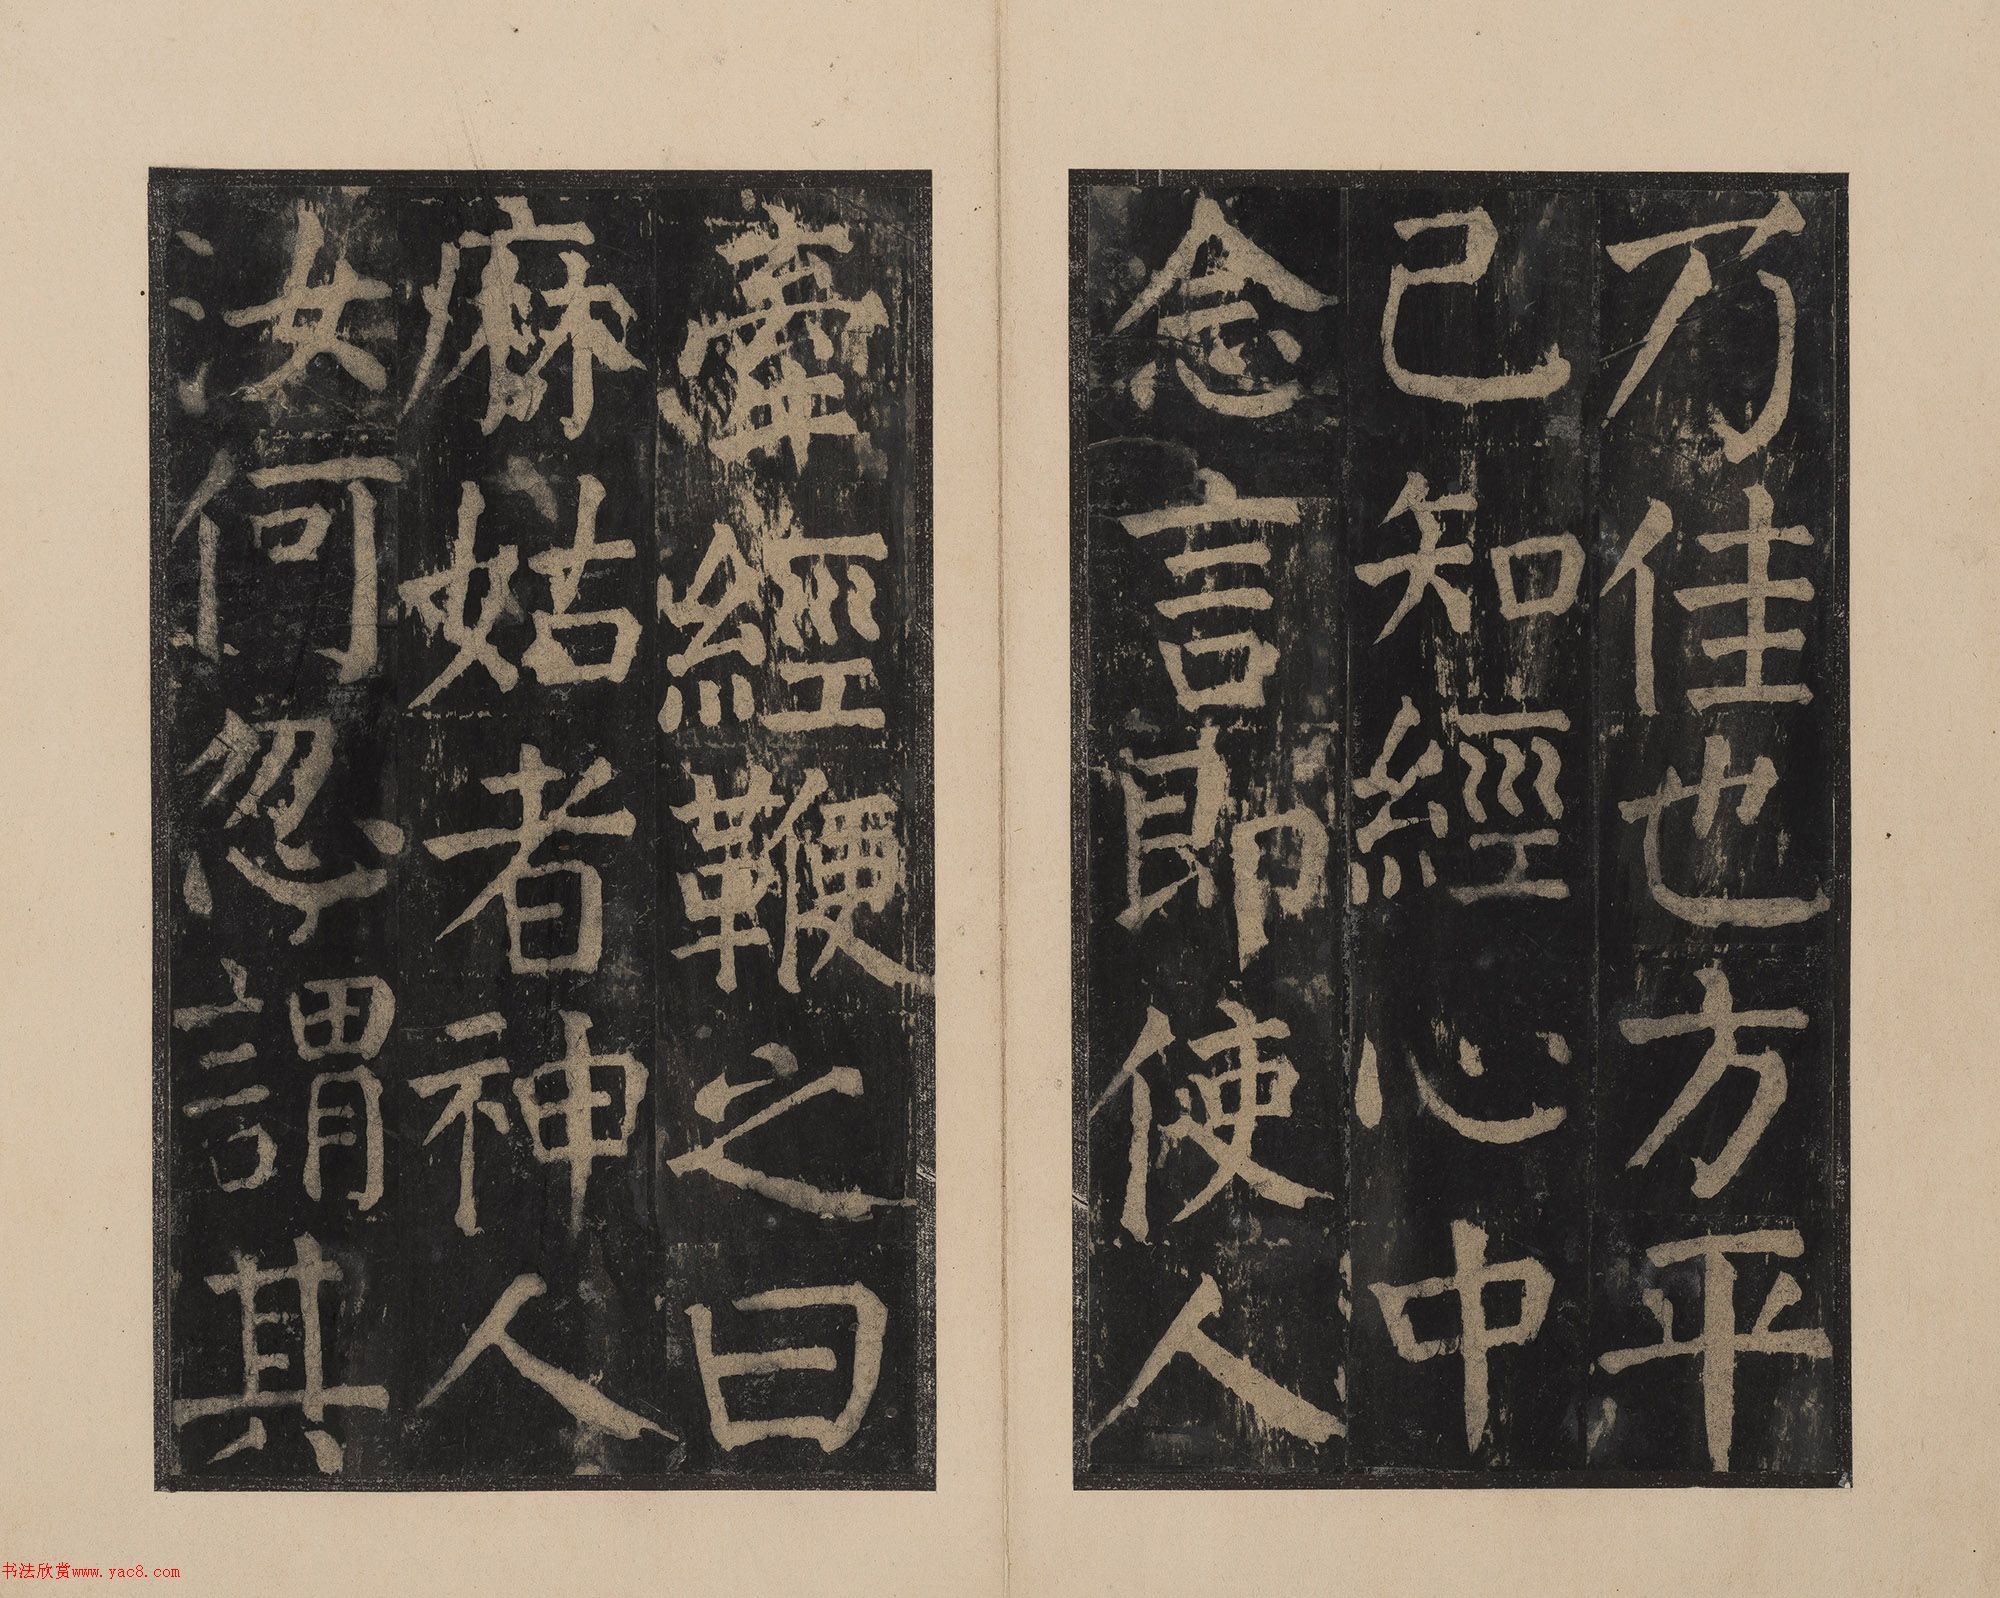 乃佳也方平
已知經心中
念言即使人
牽經鞭之曰
麻姑者神人
汝何忽謂其
书法欣赏www.yac8.com